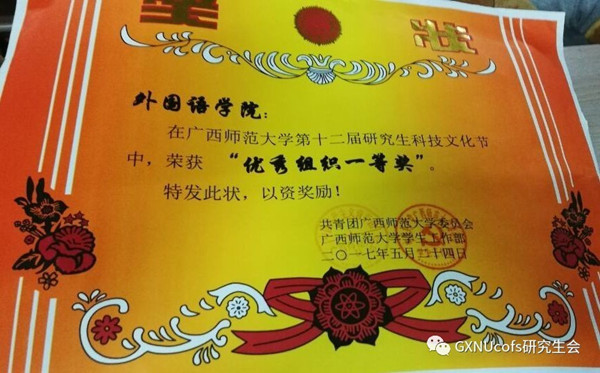 奖状
外国语学院：
在广西师范大学第十二届研究生科技文化节
中，荣获“优秀组织一等奖”。
特发此状，以资奖励！
共青团广西师范大学委员会
广西师范大学学生工作部
二〇一七年五月二十四日
GXNUcofs研究生会